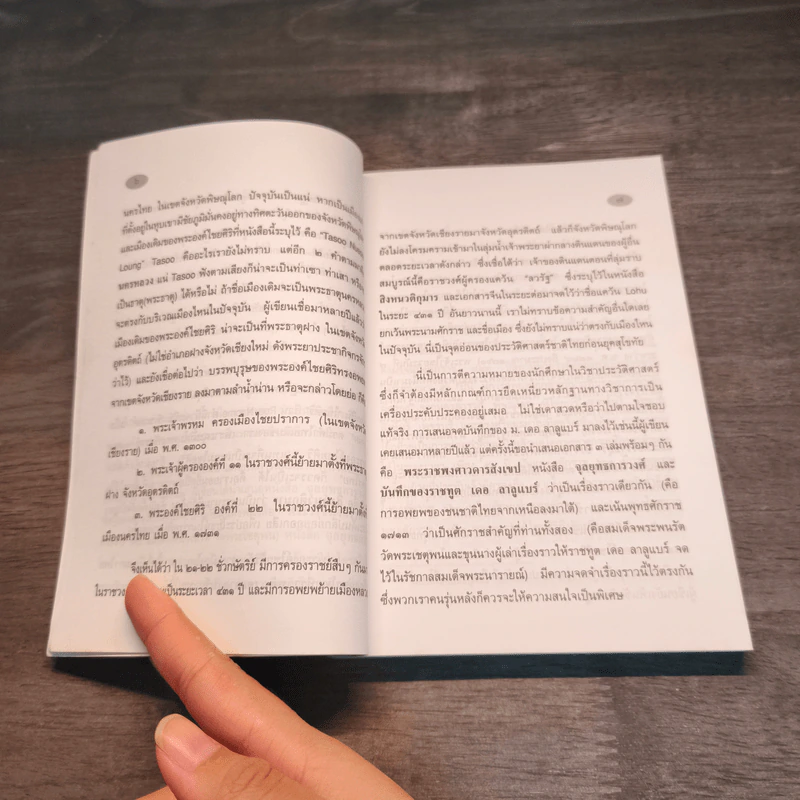 นครไทย ในเขตจังหวัดพิษณุโลก ปัจจุบันเป็นแน่ หากเป็นเมือง
ที่ตั้งอยู่ในหุบเขามีชัยภูมิมั่นคงอยู่ทางทิศตะวันออกของจังหวัด
และเมืองเดิมของพระองค์ไชยศิริที่หนังสือนี้ระบุไว้ คือ "Tasoo
Loung" Tasoo คืออะไรเรายังไม่ทราบ แต่อีก ๒ คำตาม
นครหลวง แน่ Tasoo ฟังตามเสียงก็น่าจะเป็นท่าเซา ท่าเสา หรือ
เป็นธาตุ(พระธาตุ) ได้หรือไม่ ถ้าชื่อเมืองเดิมจะเป็นพระธาตุนคร
จะตรงกับบริเวณเมืองไหนในปัจจุบัน ผู้เขียนเชื่อมาหลายปีแล้ว
เมืองเดิมของพระองค์ไชยศิริ น่าจะเป็นที่พระธาตุฝาง ในเขตจังหวัด
อุตรดิตถ์ (ไม่ใช่อำเภอฝางจังหวัดเชียงใหม่ ดังพระยาประชากิจกรจักร
ว่าไว้) และยังเชื่อต่อไปว่า บรรพบุรุษของพระองค์ไชยศิริทรงอพยพ
จากเขตจังหวัดเชียงราย ลงมาตามลำน้ำน่าน หรือจะกล่าวโดยย่อ ก็คือ
๑. พระเจ้าพรหม ครองเมืองไชยปราการ (ในเขตจังหวัด
เชียงราย) เมื่อ พ.ศ. ๑๓๐๐
๒. พระเจ้าผู้ครององค์ที่ ๑๑ ในราชวงศ์นี้ย้ายมาตั้งที่พระธาตุ
ฝาง จังหวัดอุตรดิตถ์
๓. พระองค์ไชยศิริ องค์ที่ ๒๒ ในราชวงศ์นี้ย้ายมาตั้ง
เมืองนครไทย เมื่อ พ.ศ. ๑๗๓๑
จึงเห็นได้ว่า ใน ๒๑-๒๒ ชั่วกษัตริย์ มีการครองราชย์สืบๆ กันมา
ในราชวงศ์ เป็นระยะเวลา ๔๓๑ ปี และมีการอพยพย้ายเมืองหลวง
จากเขตจังหวัดเชียงรายมาจังหวัดอุตรดิตถ์ แล้วก็จังหวัดพิษณุโลก
ยังไม่ลงโครมครามเข้ามาในลุ่มน้ำเจ้าพระยาฝ่ากลางดินแดนของผู้อื่น
ตลอดระยะเวลาดังกล่าว ซึ่งเชื่อได้ว่า เจ้าของดินแดนตอนที่ลุ่มราบ
สมบูรณ์นี้คือราชวงศ์ผู้ครองแคว้น "ลวรัฐ" ซึ่งระบุไว้ในหนังสือ
สิงหนวติกุมาร และเอกสารจีนในระยะต่อมาจดไว้ว่าชื่อแคว้น Lohu
ในระยะ ๔๓๑ ปี อันยาวนานนี้ เราไม่ทราบข้อความสำคัญอื่นใดเลย
ยกเว้นพระนามศักราช และชื่อเมือง ซึ่งยังไม่ทราบแน่ว่าตรงกับเมืองไหน
ในปัจจุบัน นี่เป็นจุดอ่อนของประวัติศาสตร์ชาติไทยก่อนยุคสุโขทัย
นี่เป็นการตีความหมายของนักศึกษาในวิชาประวัติศาสตร์
ซึ่งก็จำต้องมีหลักเกณฑ์การยึดเหนี่ยวหลักฐานทางวิชาการเป็น
เครื่องประคับประคองอยู่เสมอ ไม่ใช่เดาสวดหรือว่าไปตามใจชอบ
แท้จริง การเสนอจดบันทึกของ ม. เดอ ลาลูแบร์ มาลงไว้เช่นนี้ผู้เขียน
เคยเสนอมาหลายปีแล้ว แต่ครั้งนี้ขอนำเสนอเอกสาร ๓ เล่มพร้อมๆ กัน
คือ พระราชพงศาวดารสังเขป หนังสือ จุลยุทธการวงศ์ และ
บันทึกของราชทูต เดอ ลาลูแบร์ ว่าเป็นเรื่องราวเดียวกัน (คือ
การอพยพของชนชาติไทยจากเหนือลงมาใต้) และเน้นพุทธศักราช
๑๗๑๓ ว่าเป็นศักราชสำคัญที่ท่านทั้งสอง (คือสมเด็จพระพนรัต
วัดพระเชตุพนและขุนนางผู้เล่าเรื่องราวให้ราชทูต เดอ ลาลูแบร์ จด
ไว้ในรัชกาลสมเด็จพระนารายณ์) มีความจดจำเรื่องราวนี้ไว้ตรงกัน
ซึ่งพวกเราคนรุ่นหลังก็ควรจะให้ความสนใจเป็นพิเศษ